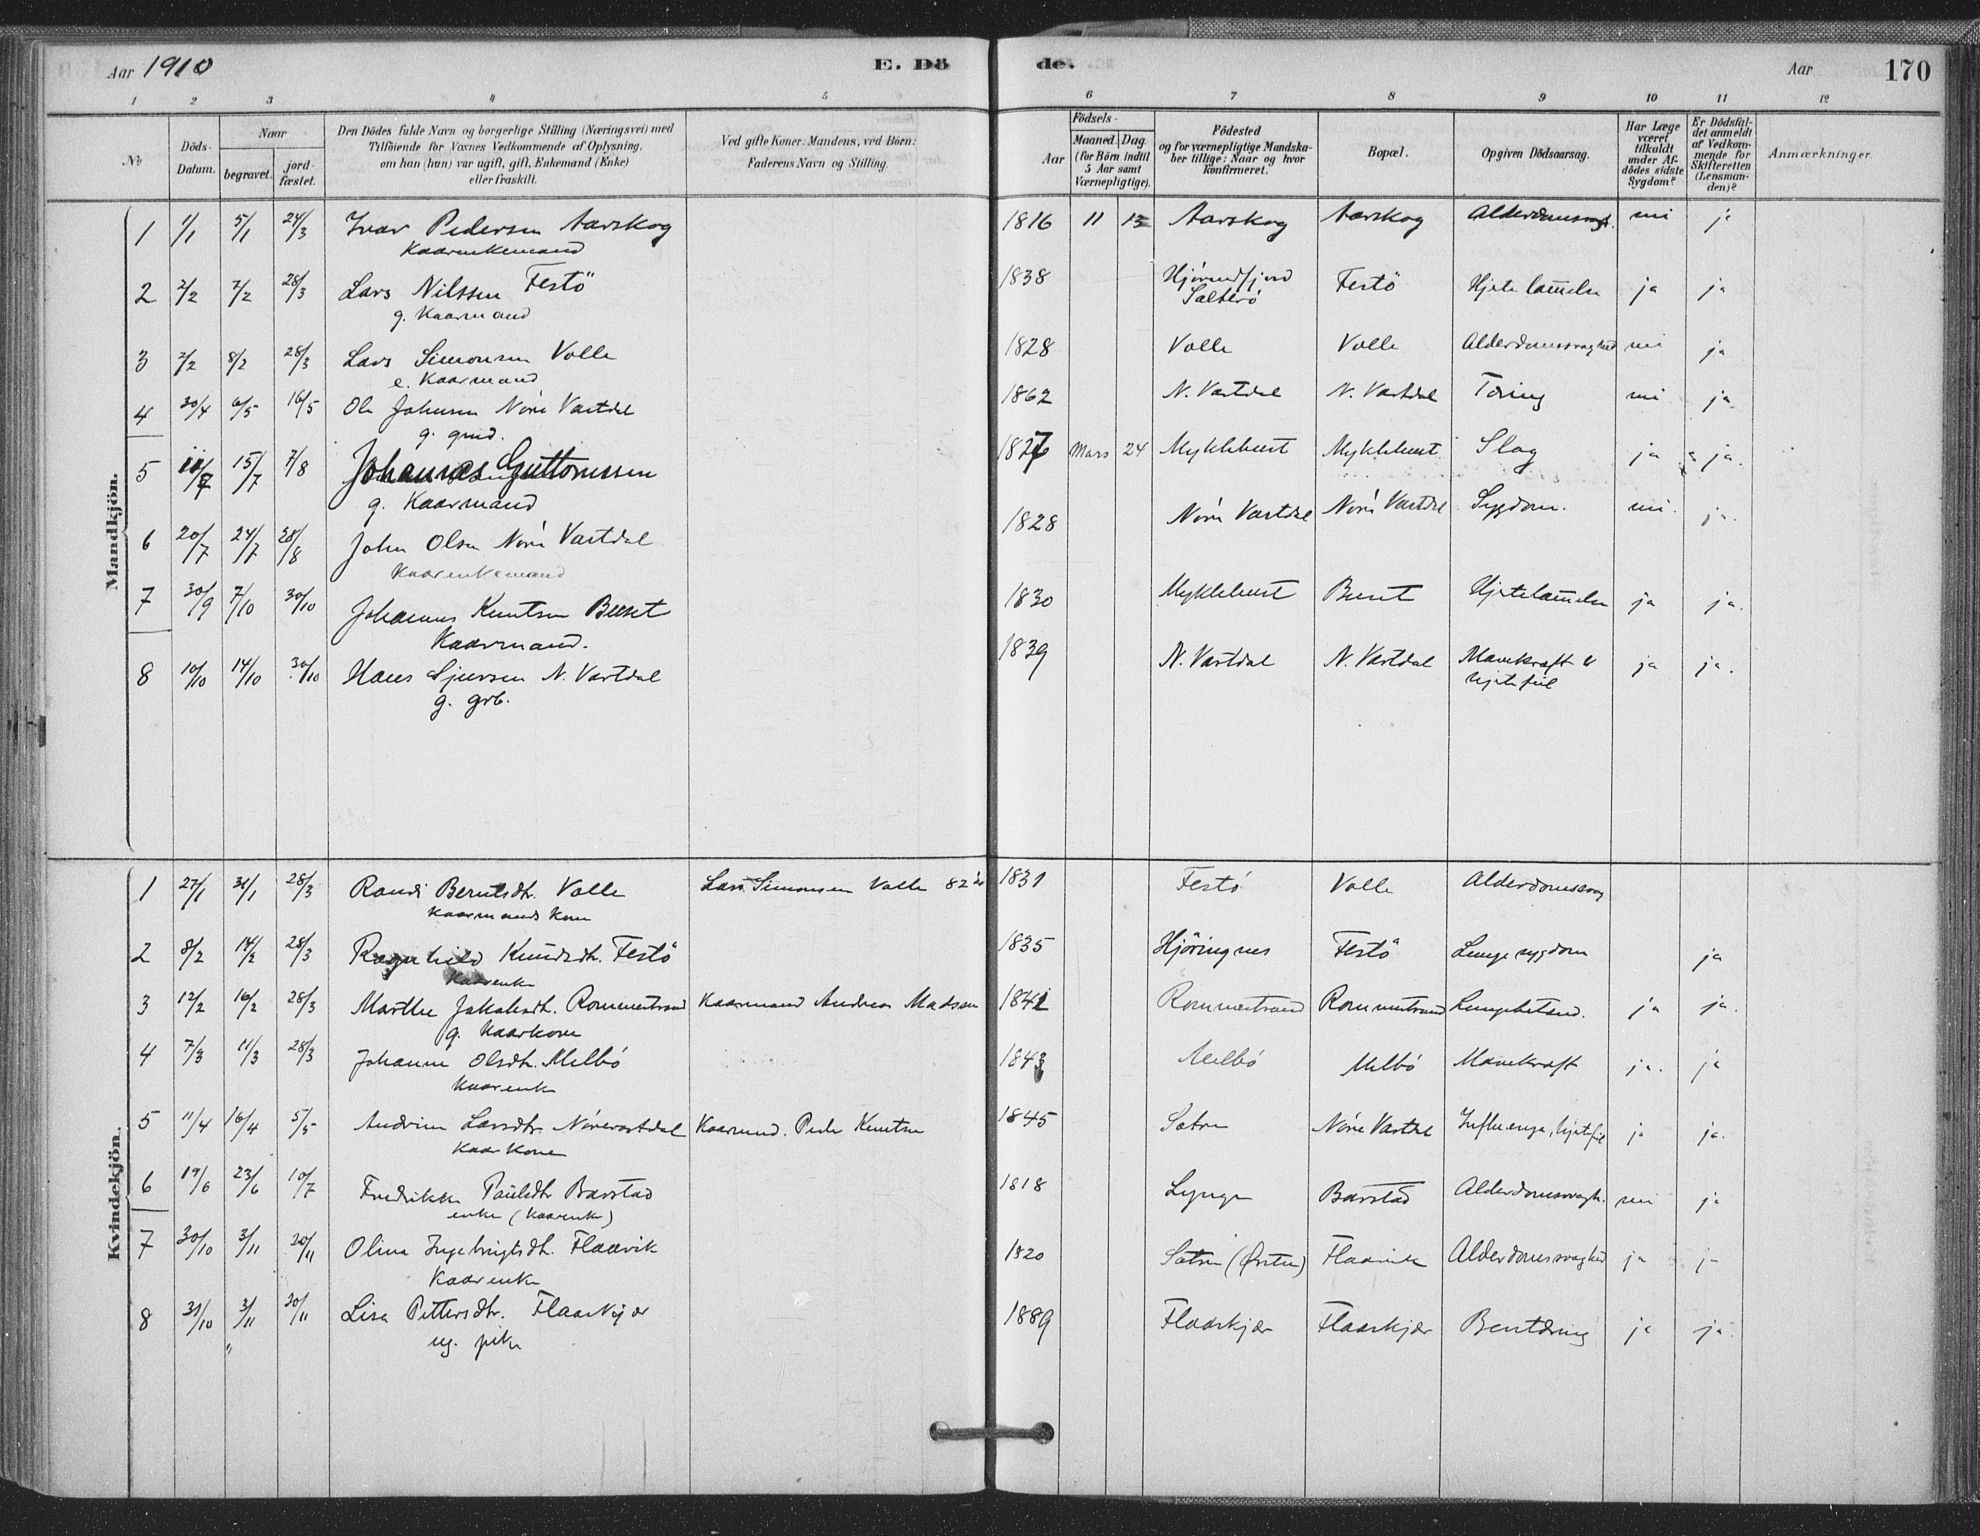 Aar 1910 E. Dö de. Aar 170
1 2 3 4 5 6 7 8 9 10 11 12
No
Döds-Datum.
Naar
begravet.
jord-fæstet.
Den Dödes fulde Navn og borgerlige Stilling (Næringsvei) med
Tilföiende for Voxnes Vedkommende af Oplysning,
om han (hun) var ugift, gift, Enkemand (Enke)
eller fraskilt.
Ved gifte Koner: Mandens, ved Börn:
Faderens Navn og Stilling.
Födsels-
Aar
Maaned. Dag.
(for Börn indtil
5 Aar samt
Værnepligtige).
Födested
og for værnepligtige Mandska-
ber tillige: Naar og hvor
konfirmeret.
Bopæl.
Opgiven Dödsaarsag.
Har Læge
været
tilkaldt
under Af-
dödes sidste
Sygdom?
Er Dödsfal-
det anmeldt
af Vedkom-
mende for
Skifteretten
(Lensman-
den)?
Anmærkninger.
Mandkjön.
1 1/1 5/1 24/3 Ivar Pedersen Aarskog 1816 11 12 Aarskog Aarskog Alderdomssvagh. nei ja
Kaarenkemand
2 2/2 7/2 28/3 Lars Nilssen Festö 1838 Hjörundfjord Festö Hjertelamelse ja ja
g. Kaarmand Sæterö
3 2/2 8/2 28/3 Lars Simonsen Valle 1828 Valle Valle Alderdomssvaghed nei ja
e. Kaarmand
4 30/4 6/5 16/5 Ole Johnsen Nöre Vartdal 1862 N. Vartdal N. Vartdal Tæring nei ja
g. grd.
5 11/7 15/7 7/8 Johannes Guttormssen 1827 Mars 24 Myklebust Myklebust Slag ja ja.
g. Kaarmand
6 20/7 24/7 28/8 John Olsen Nöre Vartdal 1828 Nöre Vartdal Nöre Vartdal Sygdom. nei. ja.
Kaarenkemand
7 30/9 7/10 30/10 Johannes Knutsen Buset 1830 Myklebust Buset Hjertelamelse ja ja.
Kaarmand.
8 10/10 14/10 30/10 Hans Sjursen N. Vartdal 1839 N. Vartdal N. Vartdal Mavekræft & ja ja.
g. grb. hjertefeil
Kvindekjön.
1 27/1 31/1 28/3 Randi Berntsdtr. Valle Lars Simonsen Valle 82 år 1831 Festö Valle Alderdomssvag
Kaarmands kone
2 8/2 14/2 28/3 Ragnhild Knudsdtr. Festö 1835 Hjöringnes Festö Lungesygdom ja
Kaarenke
3 12/2 16/2 28/3 Marthe Jakobsdtr. Rommestrand Kaarmand Andreas Madssen 1841 Rommestrand Rommestrand Lungebetænd. ja ja.
g. Kaarkone
4 7/3 11/3 28/3 Johanne Olsdtr. Melbö 1843 Melbö Melbö Mavekræft ja. ja
Kaarenke
5 11/4 16/4 5/5 Andrine Larsdtr. Nörevartdal Kaarmd. Peder Knutsen 1845 Sætre Nöre Vartdal Influenza, hjertefeil ja ja.
Kaarkone
6 19/6 23/6 10/7 Fredrikke Paulsdtr Barstad 1818 Lynge Barstad Alderdomssvagh. nei ja
enke (Kaarenke)
7 30/10 3/11 20/11 Olina Ingebrigtsdtr. Flaavik 1820 Sætre (Örsten) Flaavik Alderdomssvaghed ja ja
Kaarenke
8 31/10 3/11 20/11 Lisa Pettersdtr. Flaaskjær 1889 Flaaskjær Flaaskjær Bentæring ja ja.
ug. pike